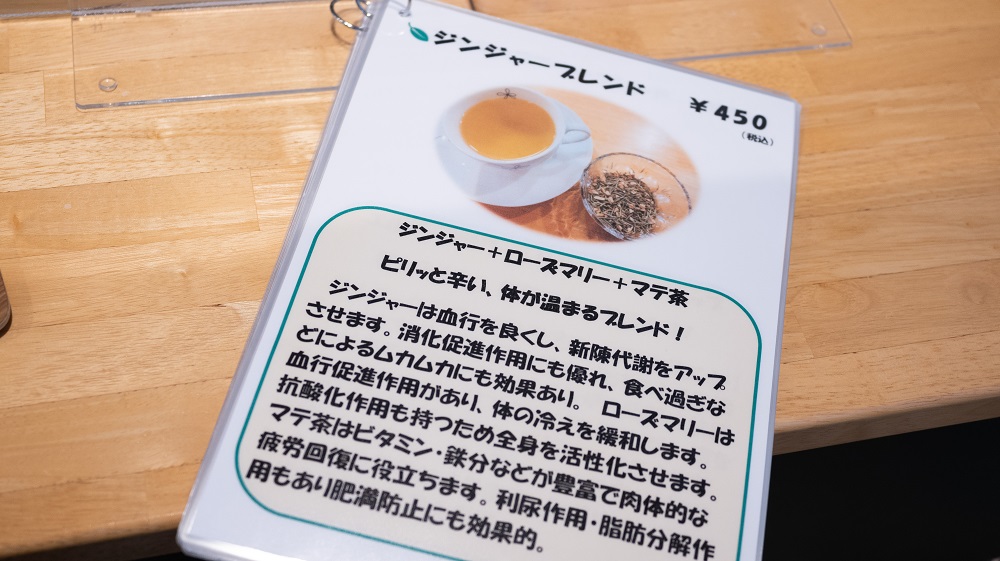 ジンジャーブレンド
￥450
(税込)
ジンジャー＋ローズマリー＋マテ茶
ピリッと辛い、体が温まるブレンド！
ジンジャーは血行を良くし、新陳代謝をアップ
させます。消化促進作用にも優れ、食べ過ぎな
どによるムカムカにも効果あり。 ローズマリーは
血行促進作用があり、体の冷えを緩和します。
抗酸化作用も持つため全身を活性化させます。
マテ茶はビタミン・鉄分などが豊富で肉体的な
疲労回復に役立ちます。利尿作用・脂肪分解作
用もあり肥満防止にも効果的。